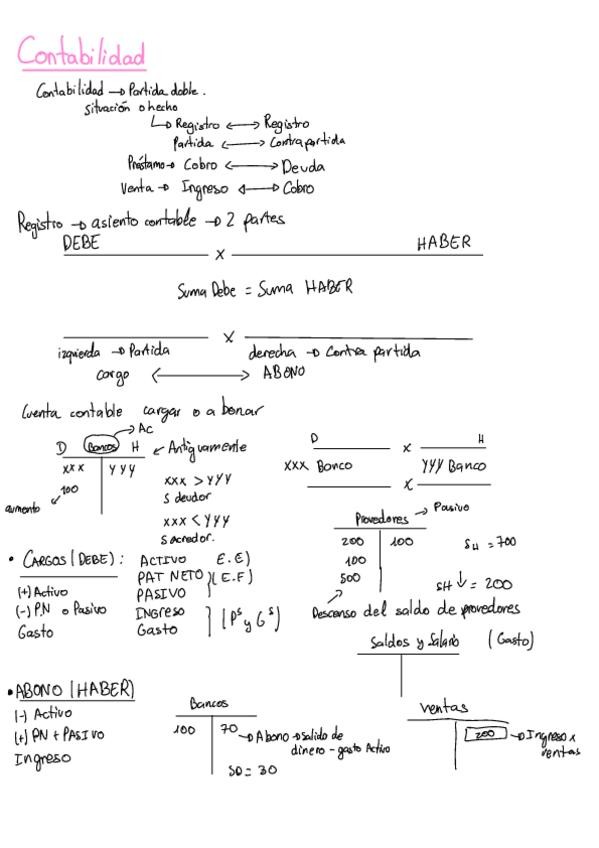 Contabilidad
Contabilidad → Partida doble.
Situación o hecho
↳ Registro ↔ Registro
Partida ↔ Contrapartida
Préstamo → Cobro ↔ Deuda
Venta → Ingreso ↔ Cobro
Registro → asiento contable → 2 partes
DEBE x HABER
Suma Debe = Suma HABER
x
izquierda → Partida derecha → Contra partida
cargo ↔ ABONO
Cuenta contable cargar o abonar
→ Ac
D Bancos H ← Antiguamente
xxx yyy
100
aumento
xxx > yyy
S deudor
xxx < yyy
S acreedor.
D x H
xxx Banco yyy Banco
x
Provedores → Pasivo
200 100 SH = 700
100
500 SH ↓ = 200
Descenso del saldo de provedores
• CARGOS (DEBE):
(+) Activo
(-) PN o Pasivo
Gasto
ACTIVO E.E)
PAT NETO (E.F)
PASIVO
INGRESO
Gasto (Ps y Gs)
Saldos y Salario (Gasto)
• ABONO (HABER)
(-) Activo
(+) PN + PASIVO
Ingreso
Bancos
100 70 → Abono → salida de
dinero - gasto Activo
SD = 30
Ventas
200 → Ingreso x
ventas